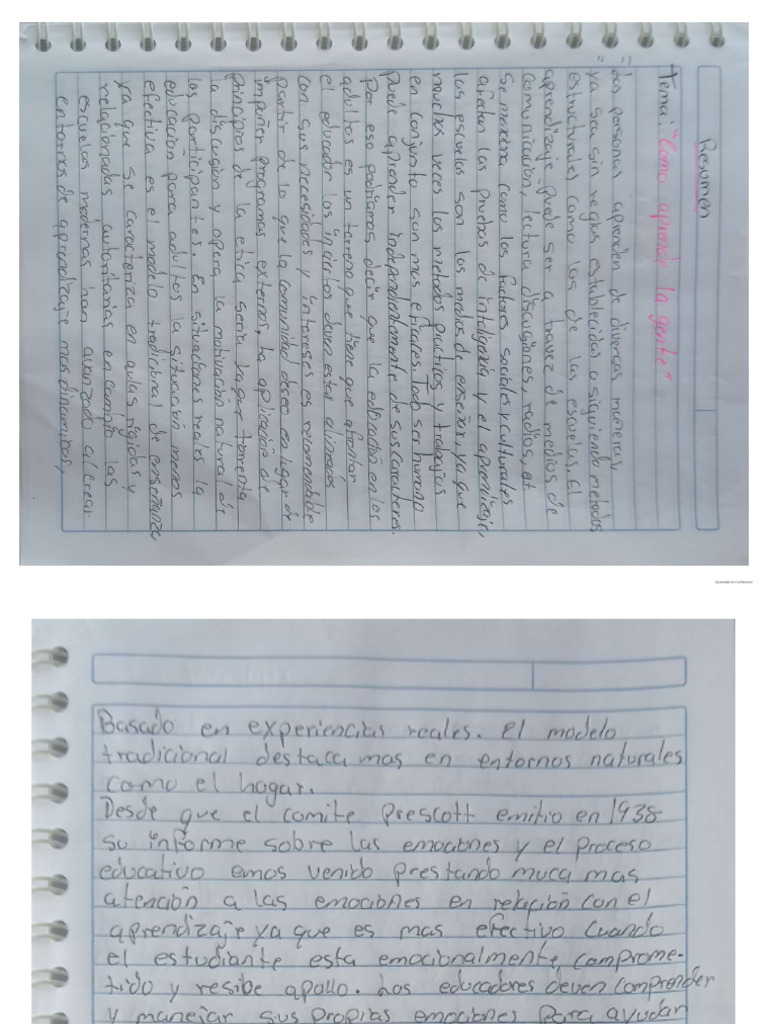 Resumen
Tema: "Como aprender la gente"
Las personas aprenden de diversas maneras,
ya sea sin reglas establecidas o siguiendo metodos
estructurales como los de las escuelas. El
aprendizaje puede ser a travez de medios de
comunicación, lectura discugiones, radios, et
Se maxima como los factores sociales y culturales
afectan las pruebas de inteligencia y el aprendizaje,
las escuelas son los medios de enseñar ya que
muchas veces los metodos practicos y trabajos
en conjunto son mas eficaces. Todo ser humano
puede aprender independientemente de sus caracteres.
Por eso podriamos decir que la educación en los
adultos es un terreno que tiene que afrontar
el educador los incictos deven estar alineados
con sus necesidades y intereses es recomendable
partir de lo que la comunidad deceo en lugar de
imponer programas externos, la aplicación de
principios de la etica seria la que fomenta
la discugion y opera la motivación natural de
los participantes. En situaciones reales la
educación para adultos la situacion menos
efectiva es el modelo tradicional de enseñanza
ya que se caracteriza en aulas rigidas y
relacionadas autoritarias en cambio las
escuelas modernas han avanzado al crear
entornos de aprendizaje mas dinamicos,
Basado en experiencias reales. El modelo
tradicional destaca mas en entornos naturales
como el hogar.
Desde que el comite Prescott emitio en 1938
su informe sobre las emociones y el proceso
educativo emos venido prestando muca mas
atención a las emociones en relación con el
aprendizaje ya que es mas efectivo cuando
el estudiante esta emocionalmente comprome-
tido y resibe apollo. Los educadores deven comprender
y manejar sus propias emociones para ayudar